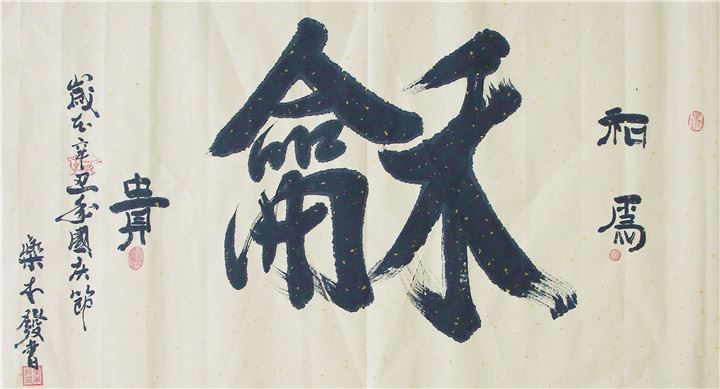 和為
龢
貴
歲在辛丑年國庆節
樂本發書